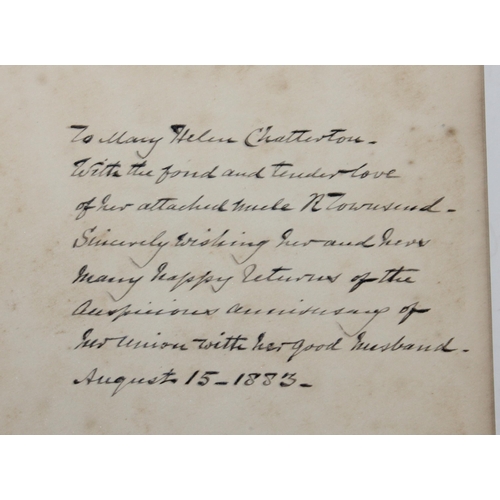 To Mary Helen Chatterton -
With the fond and tender love
of her attached uncle R Townsend -
Sincerely wishing her and hers
Many happy returns of the
auspicious anniversary of
her union with her good husband -
August 15 - 1883 -